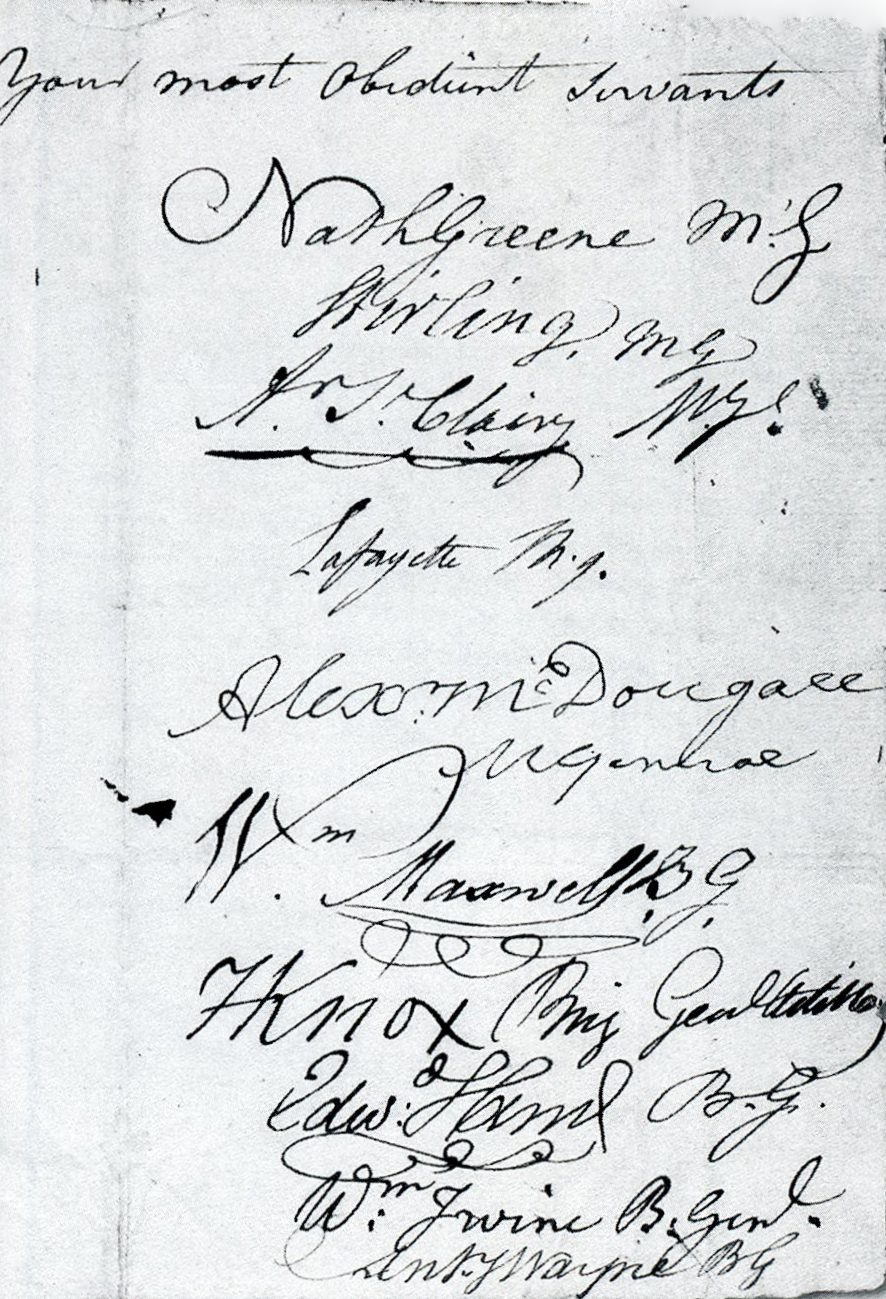 Your most Obedient Servants
Nath Greene M.G
Stirling, MG
Ar. St. Clair, M.G.
Lafayette M.g.
Alexr. McDougall
MGeneral
Wm. Maxwell B.G.
HKnox Brig Genl Artillery
Edwd: Hand B.G.
Wm: Irvine B. Genl.
Anty Wayne BG